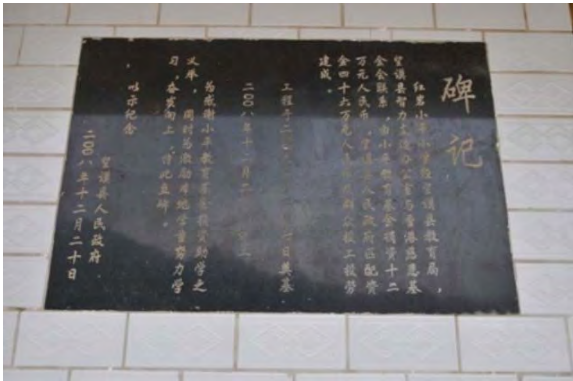 碑记
红岩小平小学经望谟县教育局，
望谟县智力支边办公室与香港慈恩基
金会联系，由小平教育基金捐资十二
万元人民币，望谟县人民政府匹配资
金四十六万元人民币
群众投工投劳
建成。
工程于二〇〇
一日奠基，
二〇〇八年十
月
为感谢小平教育基金捐资助学之
义举，同时为激励当地学童努力学
习，奋发向上，特此立碑。
以示纪念
望谟县人民政府
二〇〇八年十二月二十日